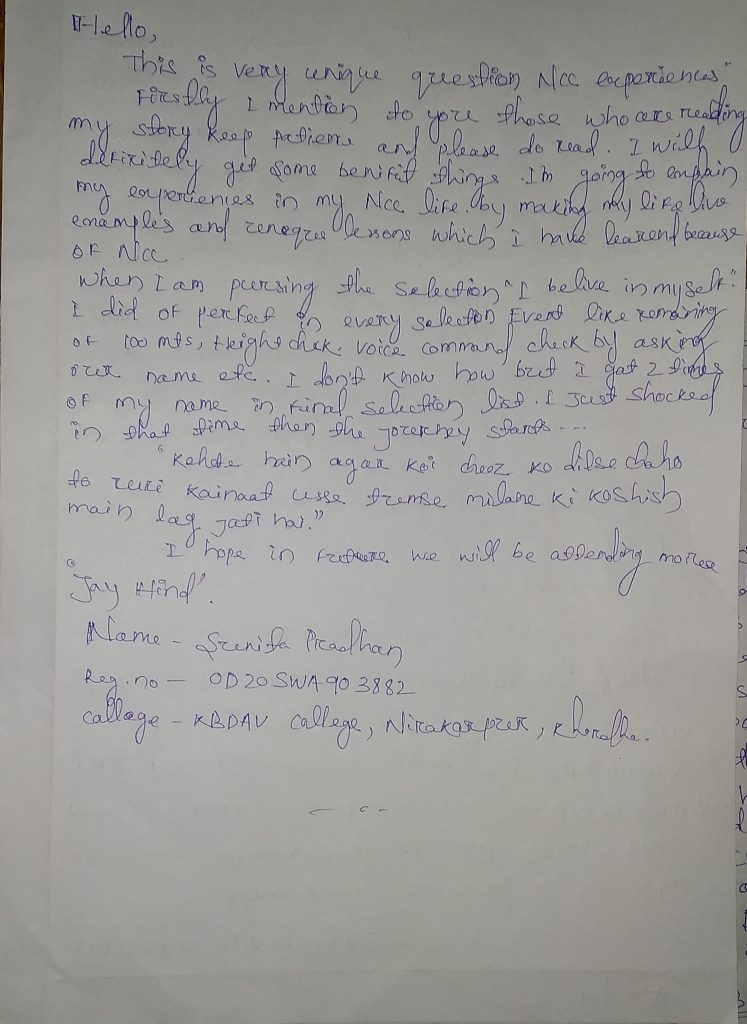 Hello,
This is very unique question Ncc experiences"
Firstly I mention to you those who are reading
my story keep patience and please do read. I will
definitely get some benifit things. I'm going to explain
my experiences in my Ncc life. by making my life live
examples and uneque lessons which I have learend because
of Ncc.
When I am pursing the selection "I belive in myself".
I did of perfect in every selection Event like running
of 100 mts, Height chek, voice command check by asking
our name etc. I don't know how but I got 2 times
of my name in final selection list. I Just shocked
in that time then the journey starts...
"Kehte hain agar koi cheez ko dilse chaho
to kainaat usse tumse milane ki koshish
main lag jati hai."
I hope in future we will be attending more
"Jay Hind".
Name - Sunita Pradhan
Reg. no - OD20SWA903882
callage - KBDAV callege, Nirakarpur, Khordha.